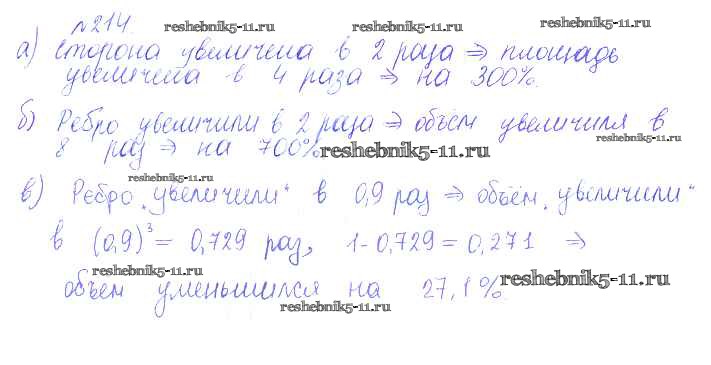 №214.
reshebnik5-11.ru
reshebnik5-11.ru
а) сторона увеличена в 2 раза ⇒ площадь
увеличена в 4 раза ⇒ на 300%.
reshebnik5-11.ru
б) Ребро увеличили в 2 раза ⇒ объём увеличился в
reshebnik5-11.ru
8 раз ⇒ на 700%
reshebnik5-11.ru
reshebnik5-11.ru
в) Ребро „увеличили“ в 0,9 раз ⇒ объём „увеличили“
в (0,9)³ = 0,729 раз, 1-0,729 = 0,271 ⇒
reshebnik5-11.ru
reshebnik5-11.ru
объем уменьшился на 27,1%.
reshebnik5-11.ru